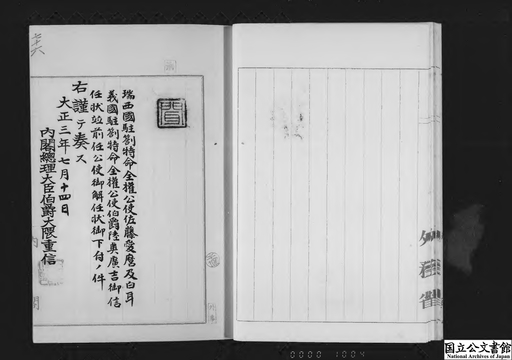 瑞西國駐劄特命全權公使佐藤愛麿及白耳
義國駐劄特命全權公使伯爵陸奥廣吉御信
任狀竝前任公使御解任狀御下付ノ件
右謹テ奏ス
大正三年七月十四日
內閣總理大臣伯爵大隈重信
外務省
0000 1004
国立公文書館
National Archives of Japan